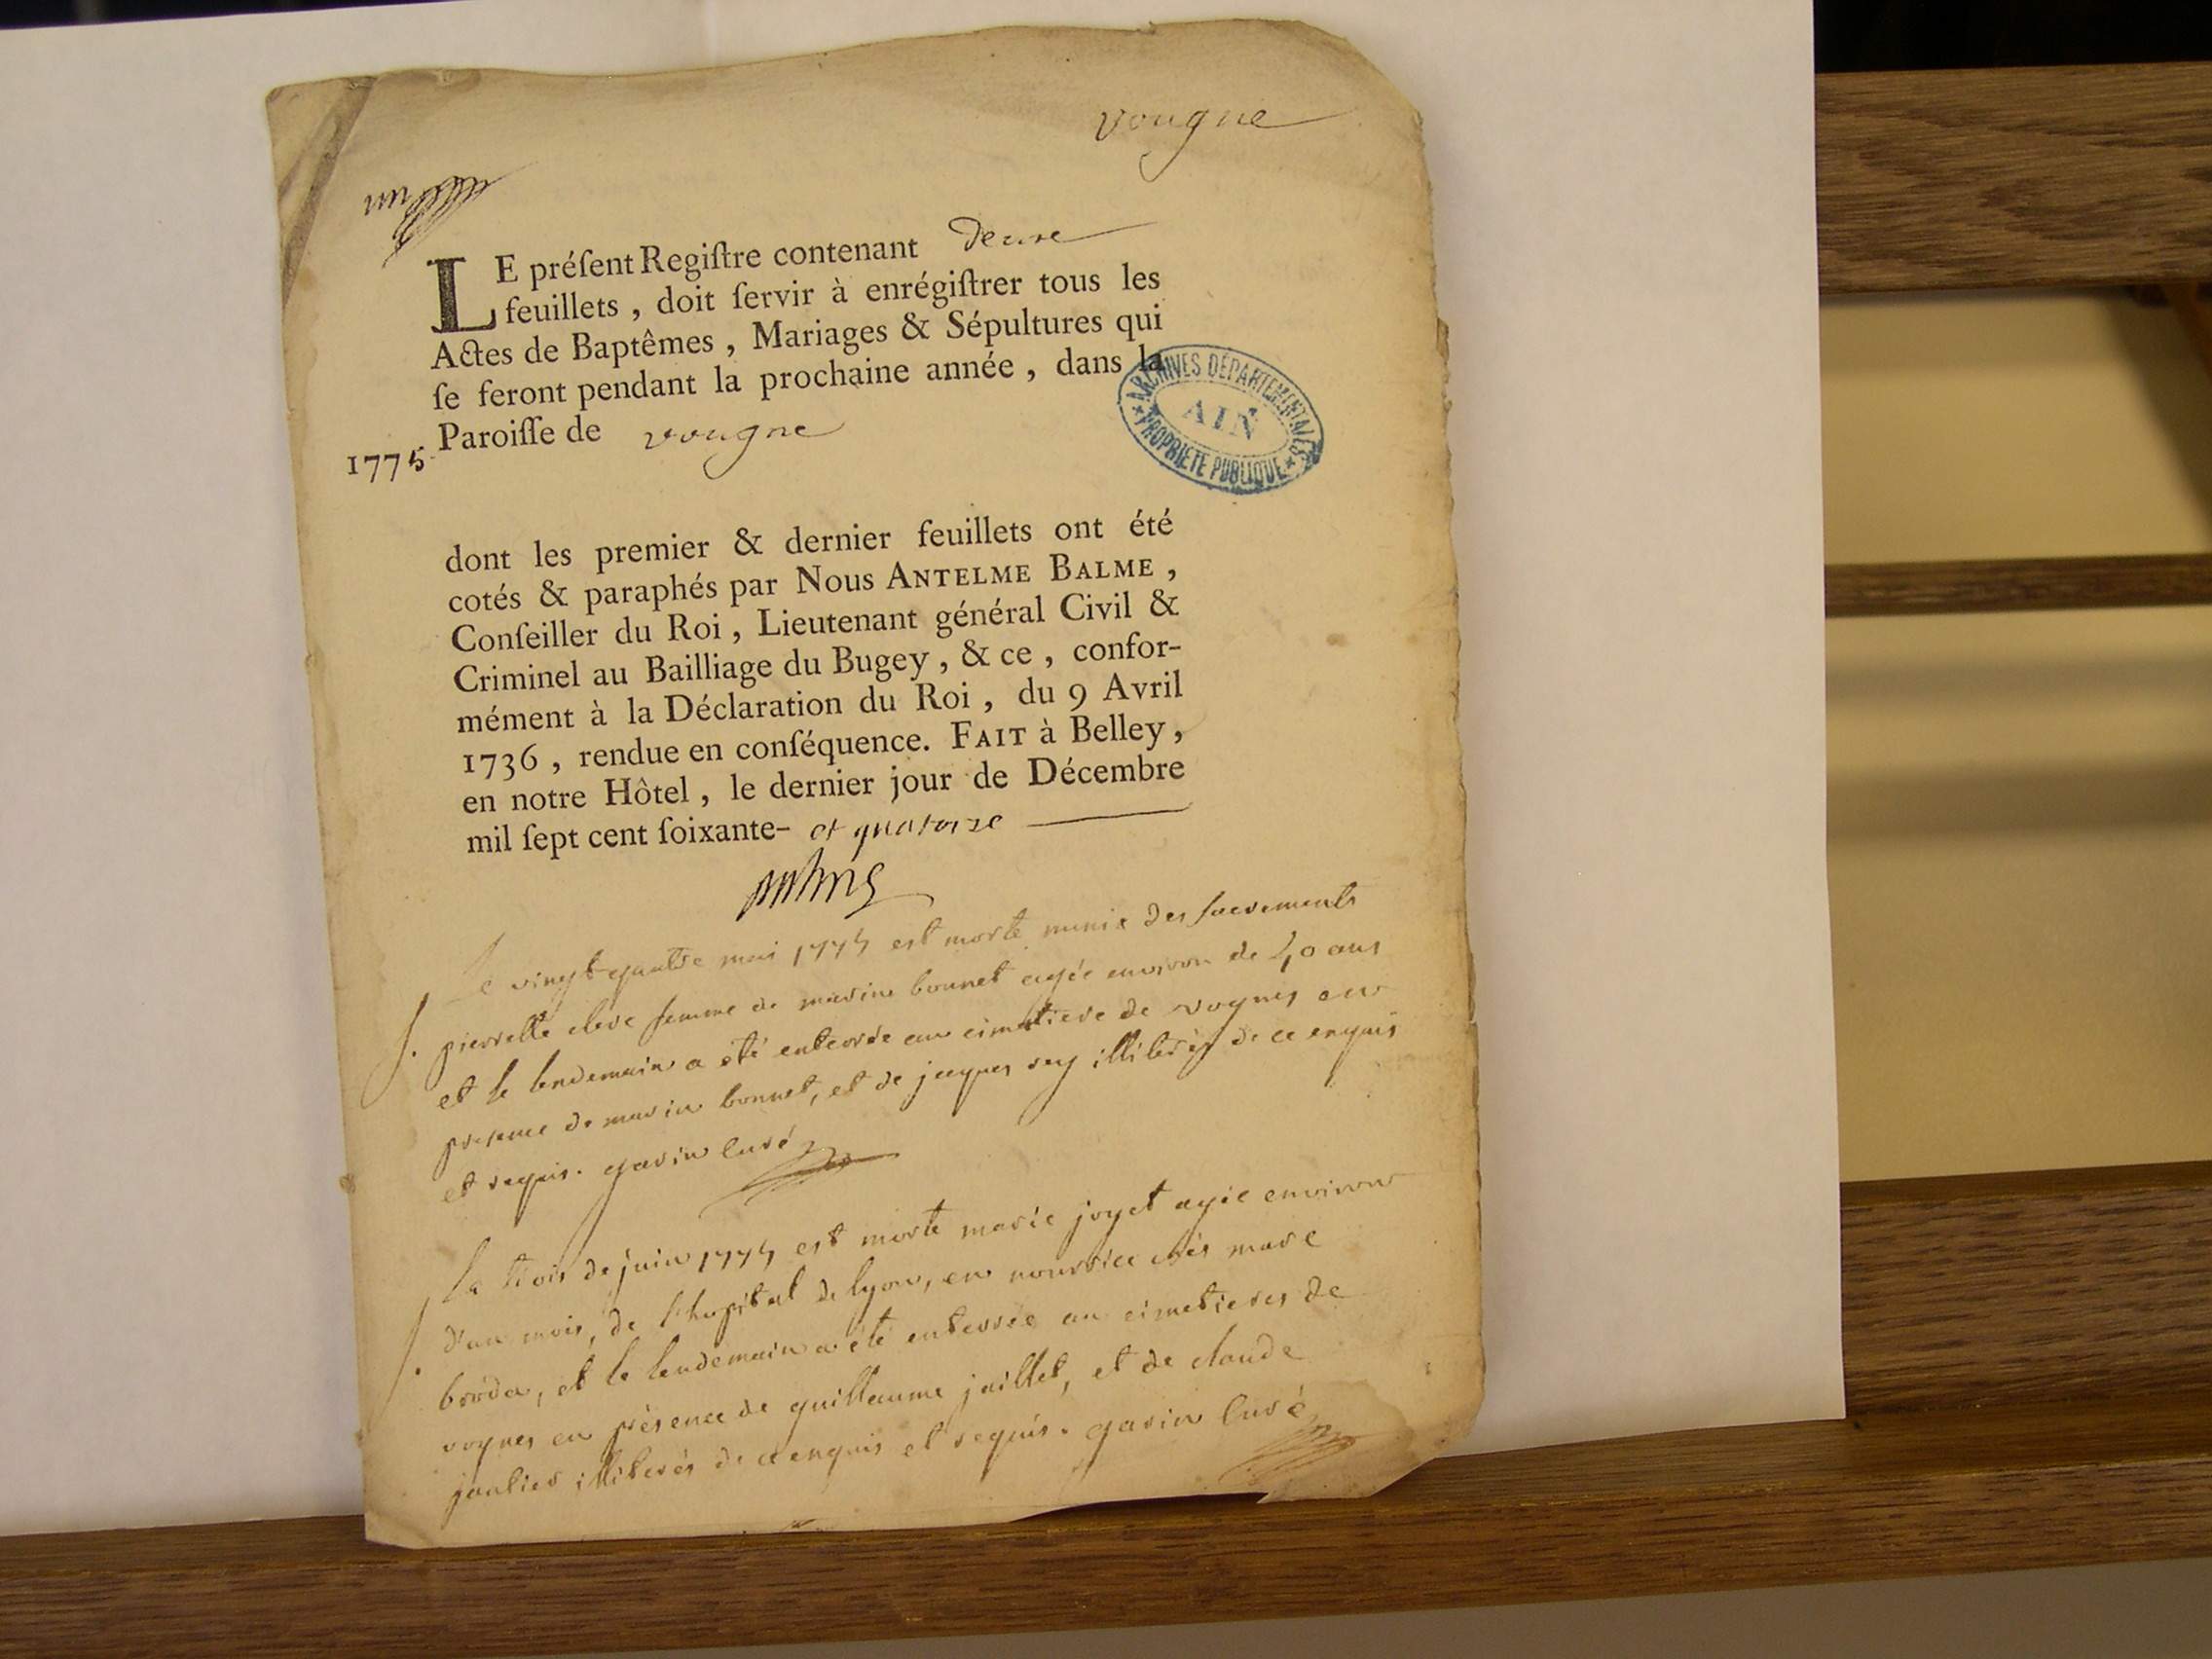 vougne
un
LE préſent Regiſtre contenant deux
feuillets , doit ſervir à enrégiſtrer tous les
Actes de Baptêmes , Mariages & Sépultures qui
ſe feront pendant la prochaine année , dans la
Paroiſſe de vougne
1775.
ARCHIVES DÉPARTEMENTALES
AIN
PROPRIÉTÉ PUBLIQUE
dont les premier & dernier feuillets ont été
cotés & paraphés par Nous ANTELME BALME ,
Conſeiller du Roi , Lieutenant général Civil &
Criminel au Bailliage du Bugey , & ce , confor-
mément à la Déclaration du Roi , du 9 Avril
1736 , rendue en conſéquence. FAIT à Belley ,
en notre Hôtel , le dernier jour de Décembre
mil ſept cent ſoixante- et quatorze
Le vingt quatre mai 1775 est morte munie des sacrements
S. pierrette clerc femme de marin bonnet agée environ de 40 ans
et le lendemain a été enterrée au cimetiere de vognes en
presence de marin bonnet, et de jacques rey illiterés de ce enquis
et requis. gavin curé
Le trois de juin 1775 est morte marie joyet agée environ
S. d'un mois, de l'hopital de lyon, en nourrice chés marc
borda, et le lendemain a été enterrée au cimetieres de
vognes en présence de guillaume jaillet, et de claude
jantier illiterés de ce enquis et requis. gavin curé